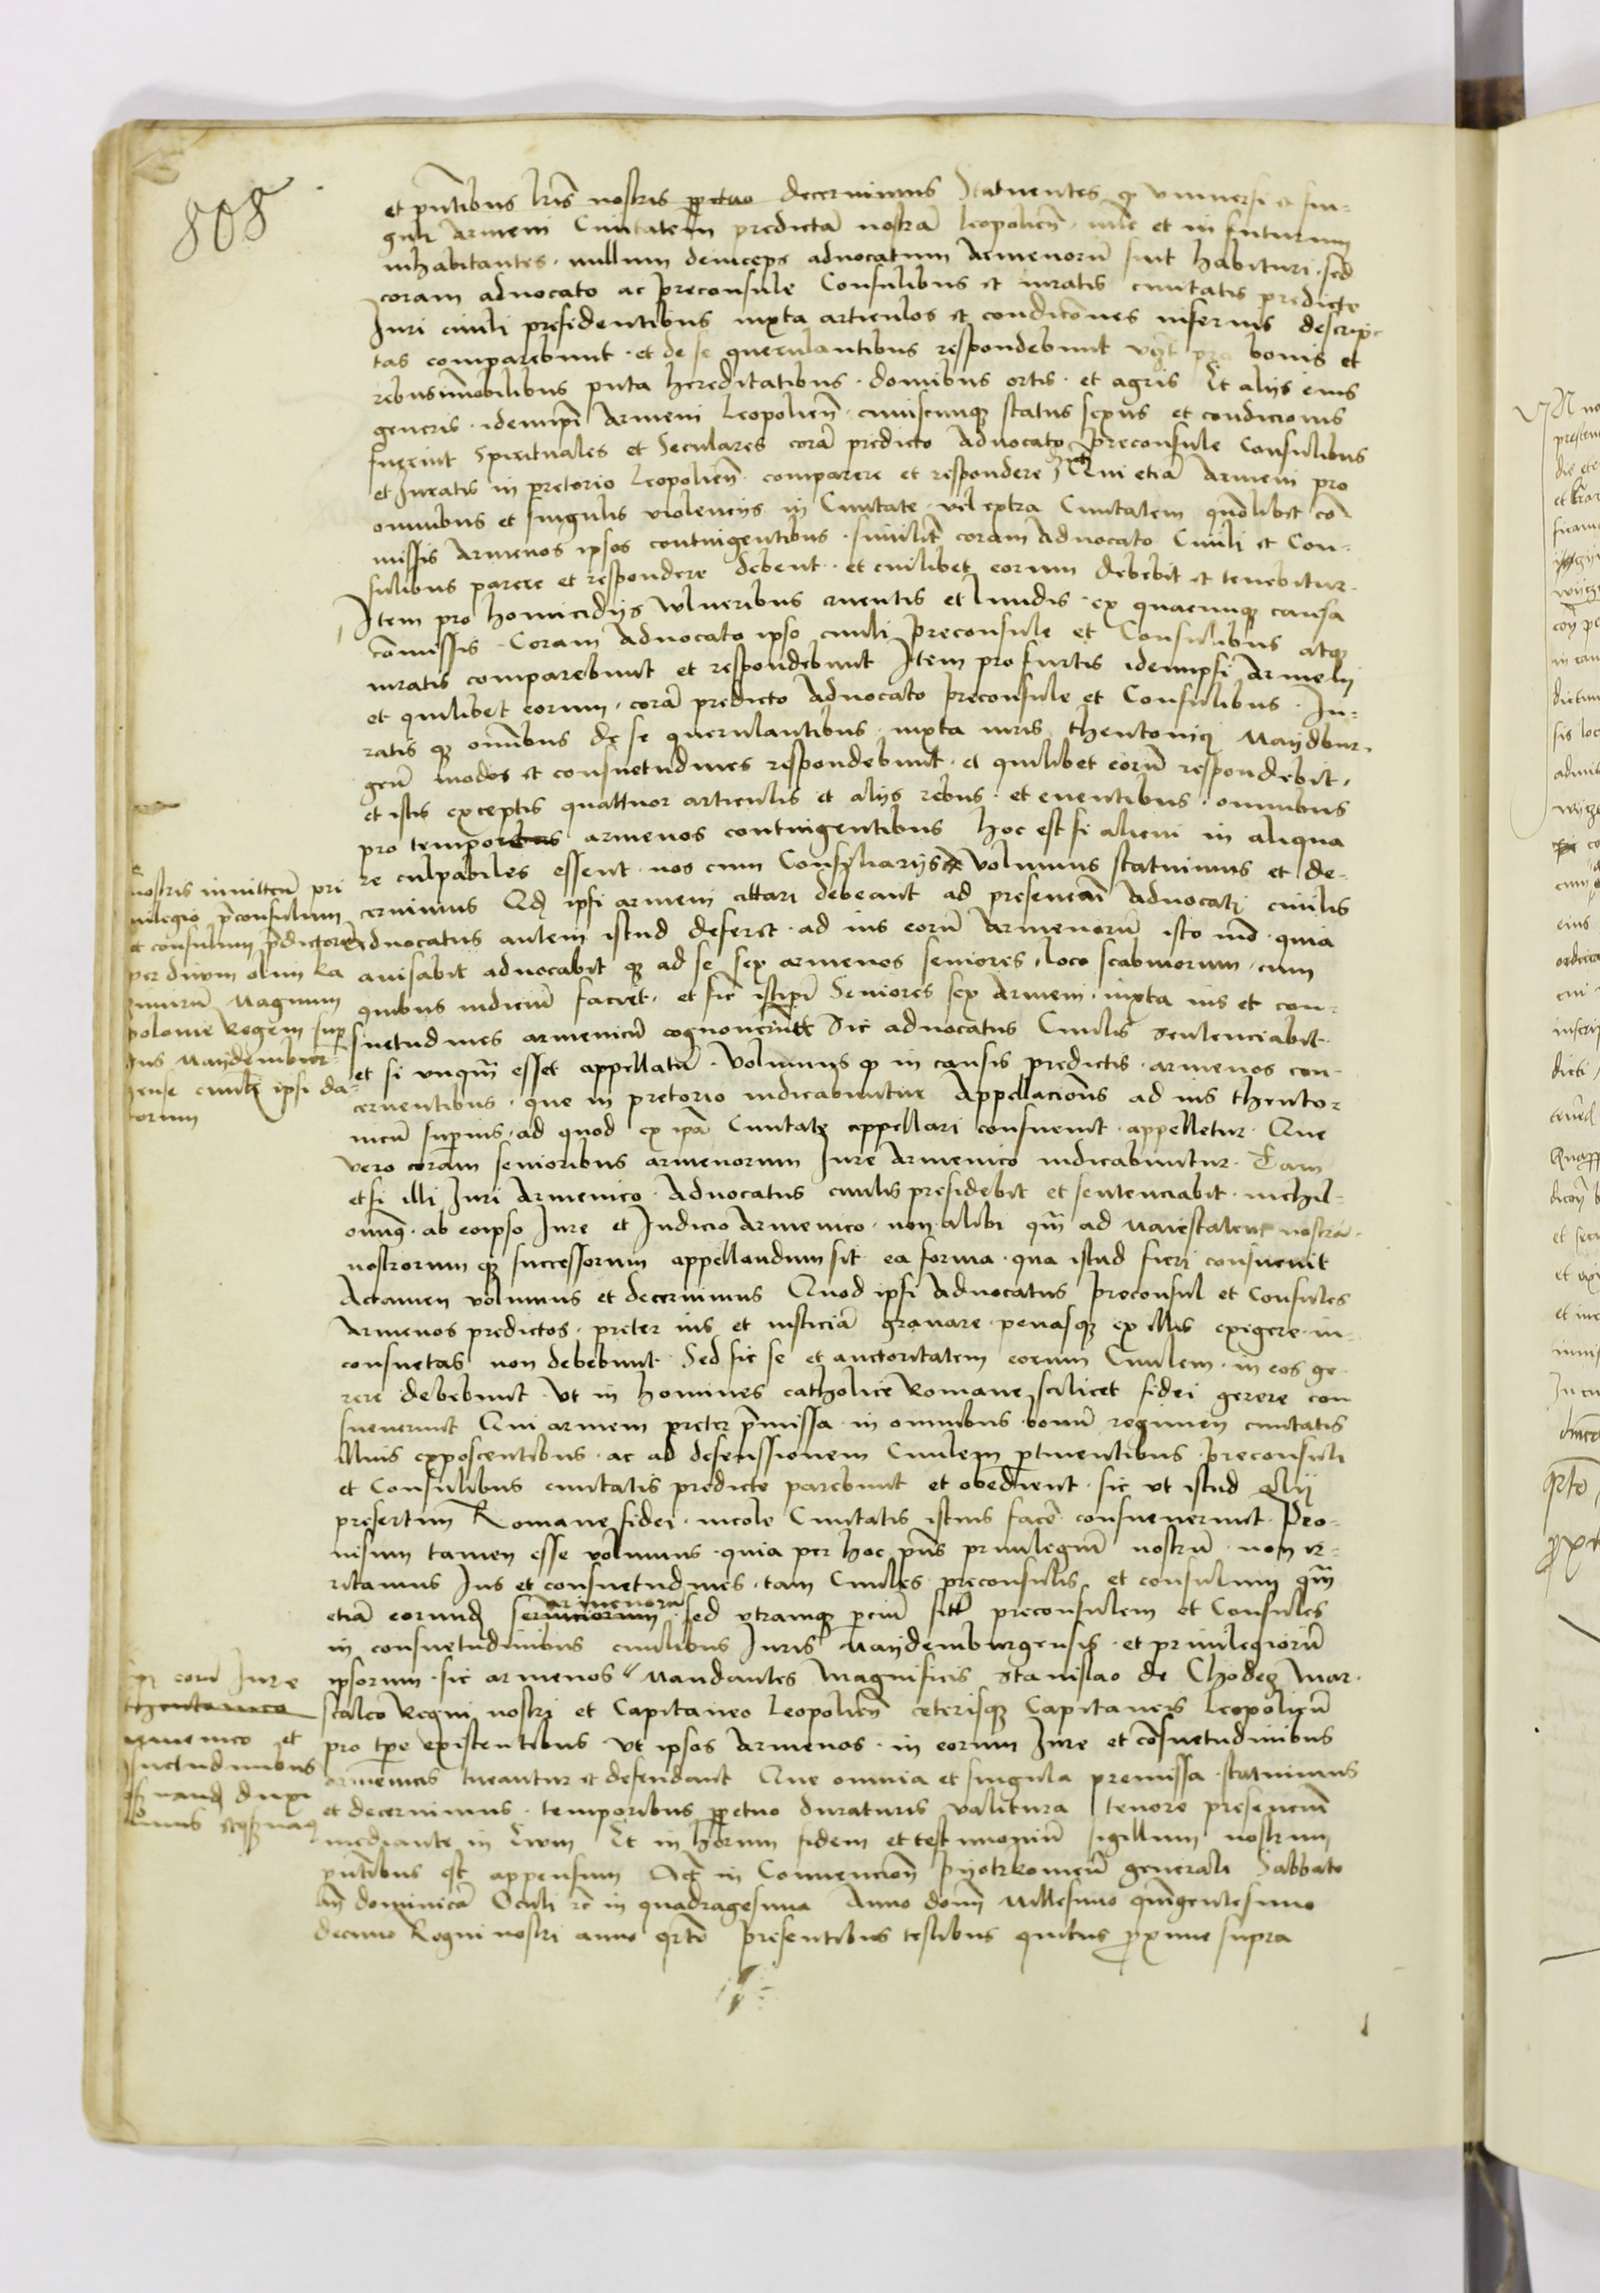 808
et pñtibus lris nostris ppetuo decernimus Statuentes q vniuersi et sin-
guli Armeni Ciuitatem predictã nostrã leopolieñ et in futurum
inhabitantes nullum deinceps aduocatum Armenorũ sint habituri sed
coram aduocato ac preconsule Consulibus et iuratis ciuitatis predicte
Iuri ciuili presidentibus iuxta articulos et condicões inferius descrip-
tas comparebunt et de se querulantibus respondebunt vizt pro bonis et
rebus ĩmobilibus puta hereditatibus domibus ortis et agris Et alijs eius
generis idemipsi Armeni leopolieñ cuiuscunqz status sexus et condicionis
fuerint Spirituales et Seculares corã predicto Aduocato preconsule Consulibus
et Iuratis in pretorio leopolieñ comparere et respondere Qui etiã Armeni pro
omnibus et singulis violencijs in Ciuitate vel extra Ciuitatem quolibet cõ
missis Armenos ipsos contingentibus similit coram Aduocato Ciuili et Con-
sulibus parere et respondere debent et quilibet eorum debebit et tenebitur
Item pro homicidijs vulneribus cruentis et liuidis ex quacunqz causa
cõmissis Coram Aduocato ipso ciuili preconsule et Consulibus atqz
iuratis comparebunt et respondebunt Item pro furtis idemipsi Armeni
et quilibet eorum corã predicto Aduocato preconsule et Consulibus Iu-
ratis qz omĩbus de se querulantibus iuxta iuris theutonici Maydbur-
geñ modos et consuetudines respondebunt et quilibet eorũ respondebit
et istis exceptis quattuor articulis et alijs rebus et euentibus omnibus
pro temporibus armenos contingentibus hoc est si alieni in aliqua
re culpabiles essent nos cum Consiliarijs volumus statuimus et de-
cernimus Qd ipsi armeni cittari debeant ad presenciã Aduocati ciuilis
Aduocatus autem istud deferet ad ius eorũ Armenorũ isto mõ quia
auisabit aduocabit qz ad se sex armenos seniores loco scabinorum cum
quibus iudiciũ faciet et sic istipi Seniores sex Armeni iuxta ius et con-
suetudines armenicũ cognouerint sic aduocatus Ciuilis sentenciabit
et si vnqm esset appellatũ Volumus q in causis predictis armenos con-
cernentibus que in pretorio iudicabuntur Appellacions ad ius theuto-
nicũ superius ad quod ex ipã Ciuitate appellari consueuit appelletur Que
vero coram senioribus armenorum Iure Armenico iudicabuntur Tam
etsi illi Iuri Armenico Aduocatus ciuilis presidebit et sentenciabit nichil-
omin9 ab eoipso Iure et Iudicio Armenico non alibi qm ad Maiestatem nostrã
nostrorum qz successorum appellandum sit ea forma qua istud fieri consueuit
Actamen volumus et decernimus Quod ipsi Aduocatus preconsul et Consules
Armenos predictos preter ius et iusticiã grauare penasqz ex illis exigere in-
consuetas non debebunt Sed sic se et auctoritatem eorum Ciuilem in eos ge-
rere debebunt Vt in homines catholice Romane scilicet fidei gerere con
sueuerunt Qui armeni preter p̃missa in omnibus bonũ regimen ciuitatis
illius exposcentibus ac ad defenssionem Ciuilem ptinentibus preconsuli
et Consulibus ciuitatis predicte parebunt et obedient sic vt istud alij
presertim Romane fidei incole Ciuitatis istius facẽ consueuerunt Pro-
uisum tamen esse volumus quia per hoc pñs priuilegiũ nostrũ non ir-
ritamus Ius et consuetudines tam Ciuiles preconsulis et consulum qm
etiã eorund seruiciorum armenorũ sed vtramqz parciũ preconsulem et Consules
in consuetudinibus ciuilibus Iuris Maydemburgensis et priuilegiorũ
ipsorum sic armenos Mandantes Magnificis Stanislao de Chodecz Mar-
scalco Regni nostri et Capitaneo leopolieñ ceterisqz Capitaneis leopolieñ
pro tpe existentibus vt ipsos Armenos in eorum Iure et cõsuetudinibus
armenicis tueantur et defendant Que omnia et singula premissa statuimus
et decernimus temporibus ppetuo duraturis valitura tenore presenciũ
mediante in Et in horum fidem et testimoniũ sigillum nostrum
pñtibus est appensum Act in Conuencione Pyotrkowieñ generali Sabbato
añ dominicã Oculi in quadragesima Anno dom Millesimo quĩgentesimo
decimo Regni nostri anno qrto Presentibus testibus quibus pxime supra
nostris pri
uilegio pconsulum
et consulum pdictorũ
per diuum olim Ka
zimirũ Magnum
polonie Regem super
Ius Maydembur-
gense ciuile ipsi da-
torum
in eorũ Iure
theutonico
armenico et
suetudinibus